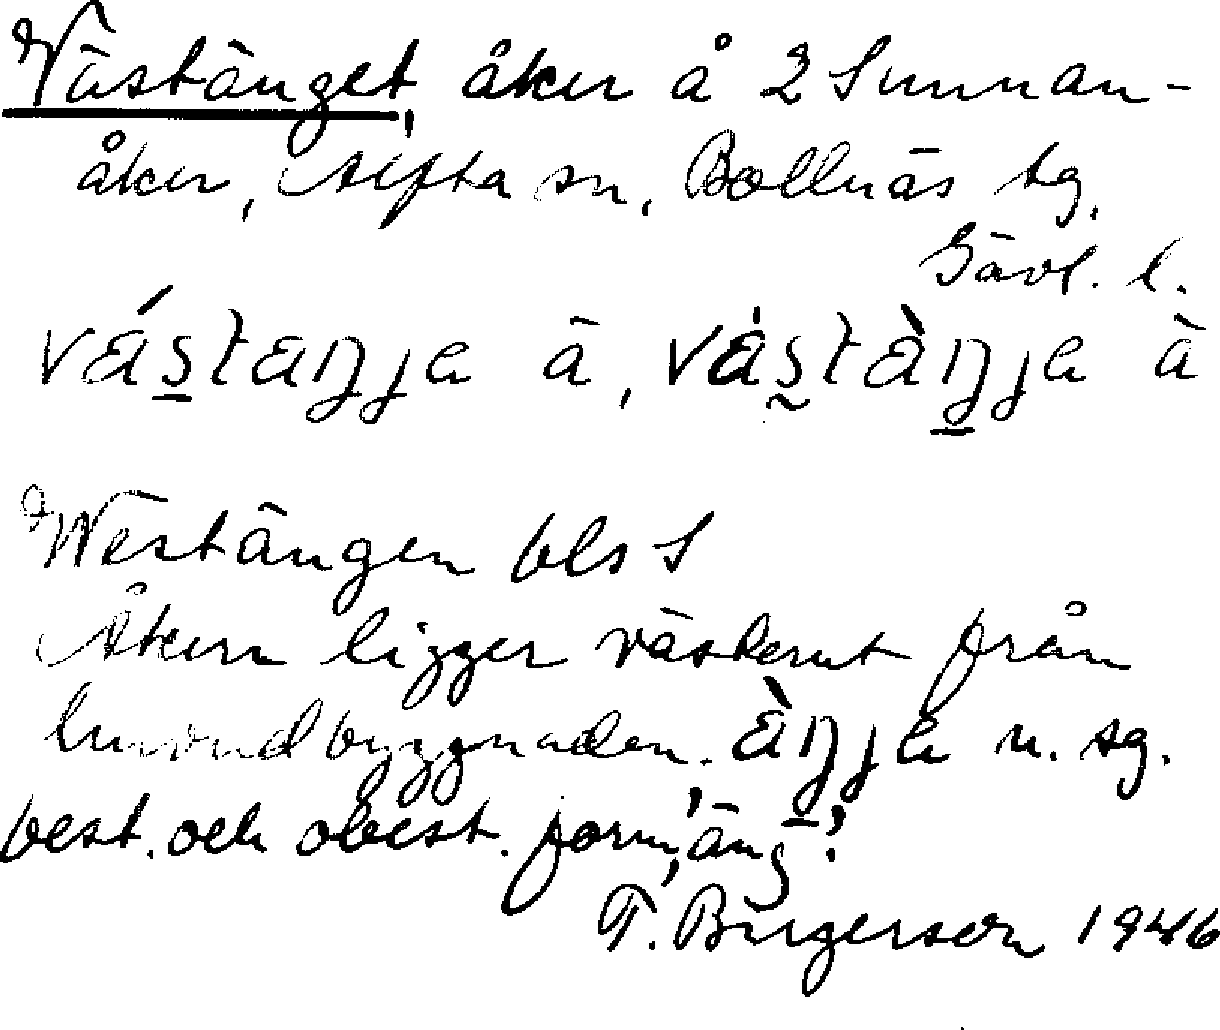 Västänget, åker å 2 Sunnan-
åker, Alfta sn, Bollnäs tg.
Gävl. l.
vástaŋja ā, vàstàŋja à
Westängen bls S
Åkern ligger västerut från
huvudbyggnaden. àŋja n. sg.
best. och obest. form, 'äng'.
T. Birgerson 1946